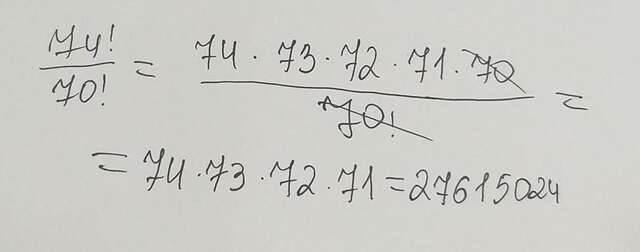 74!/70! = 74 · 73 · 72 · 71 · 70/70! =
= 74 · 73 · 72 · 71 = 27615024